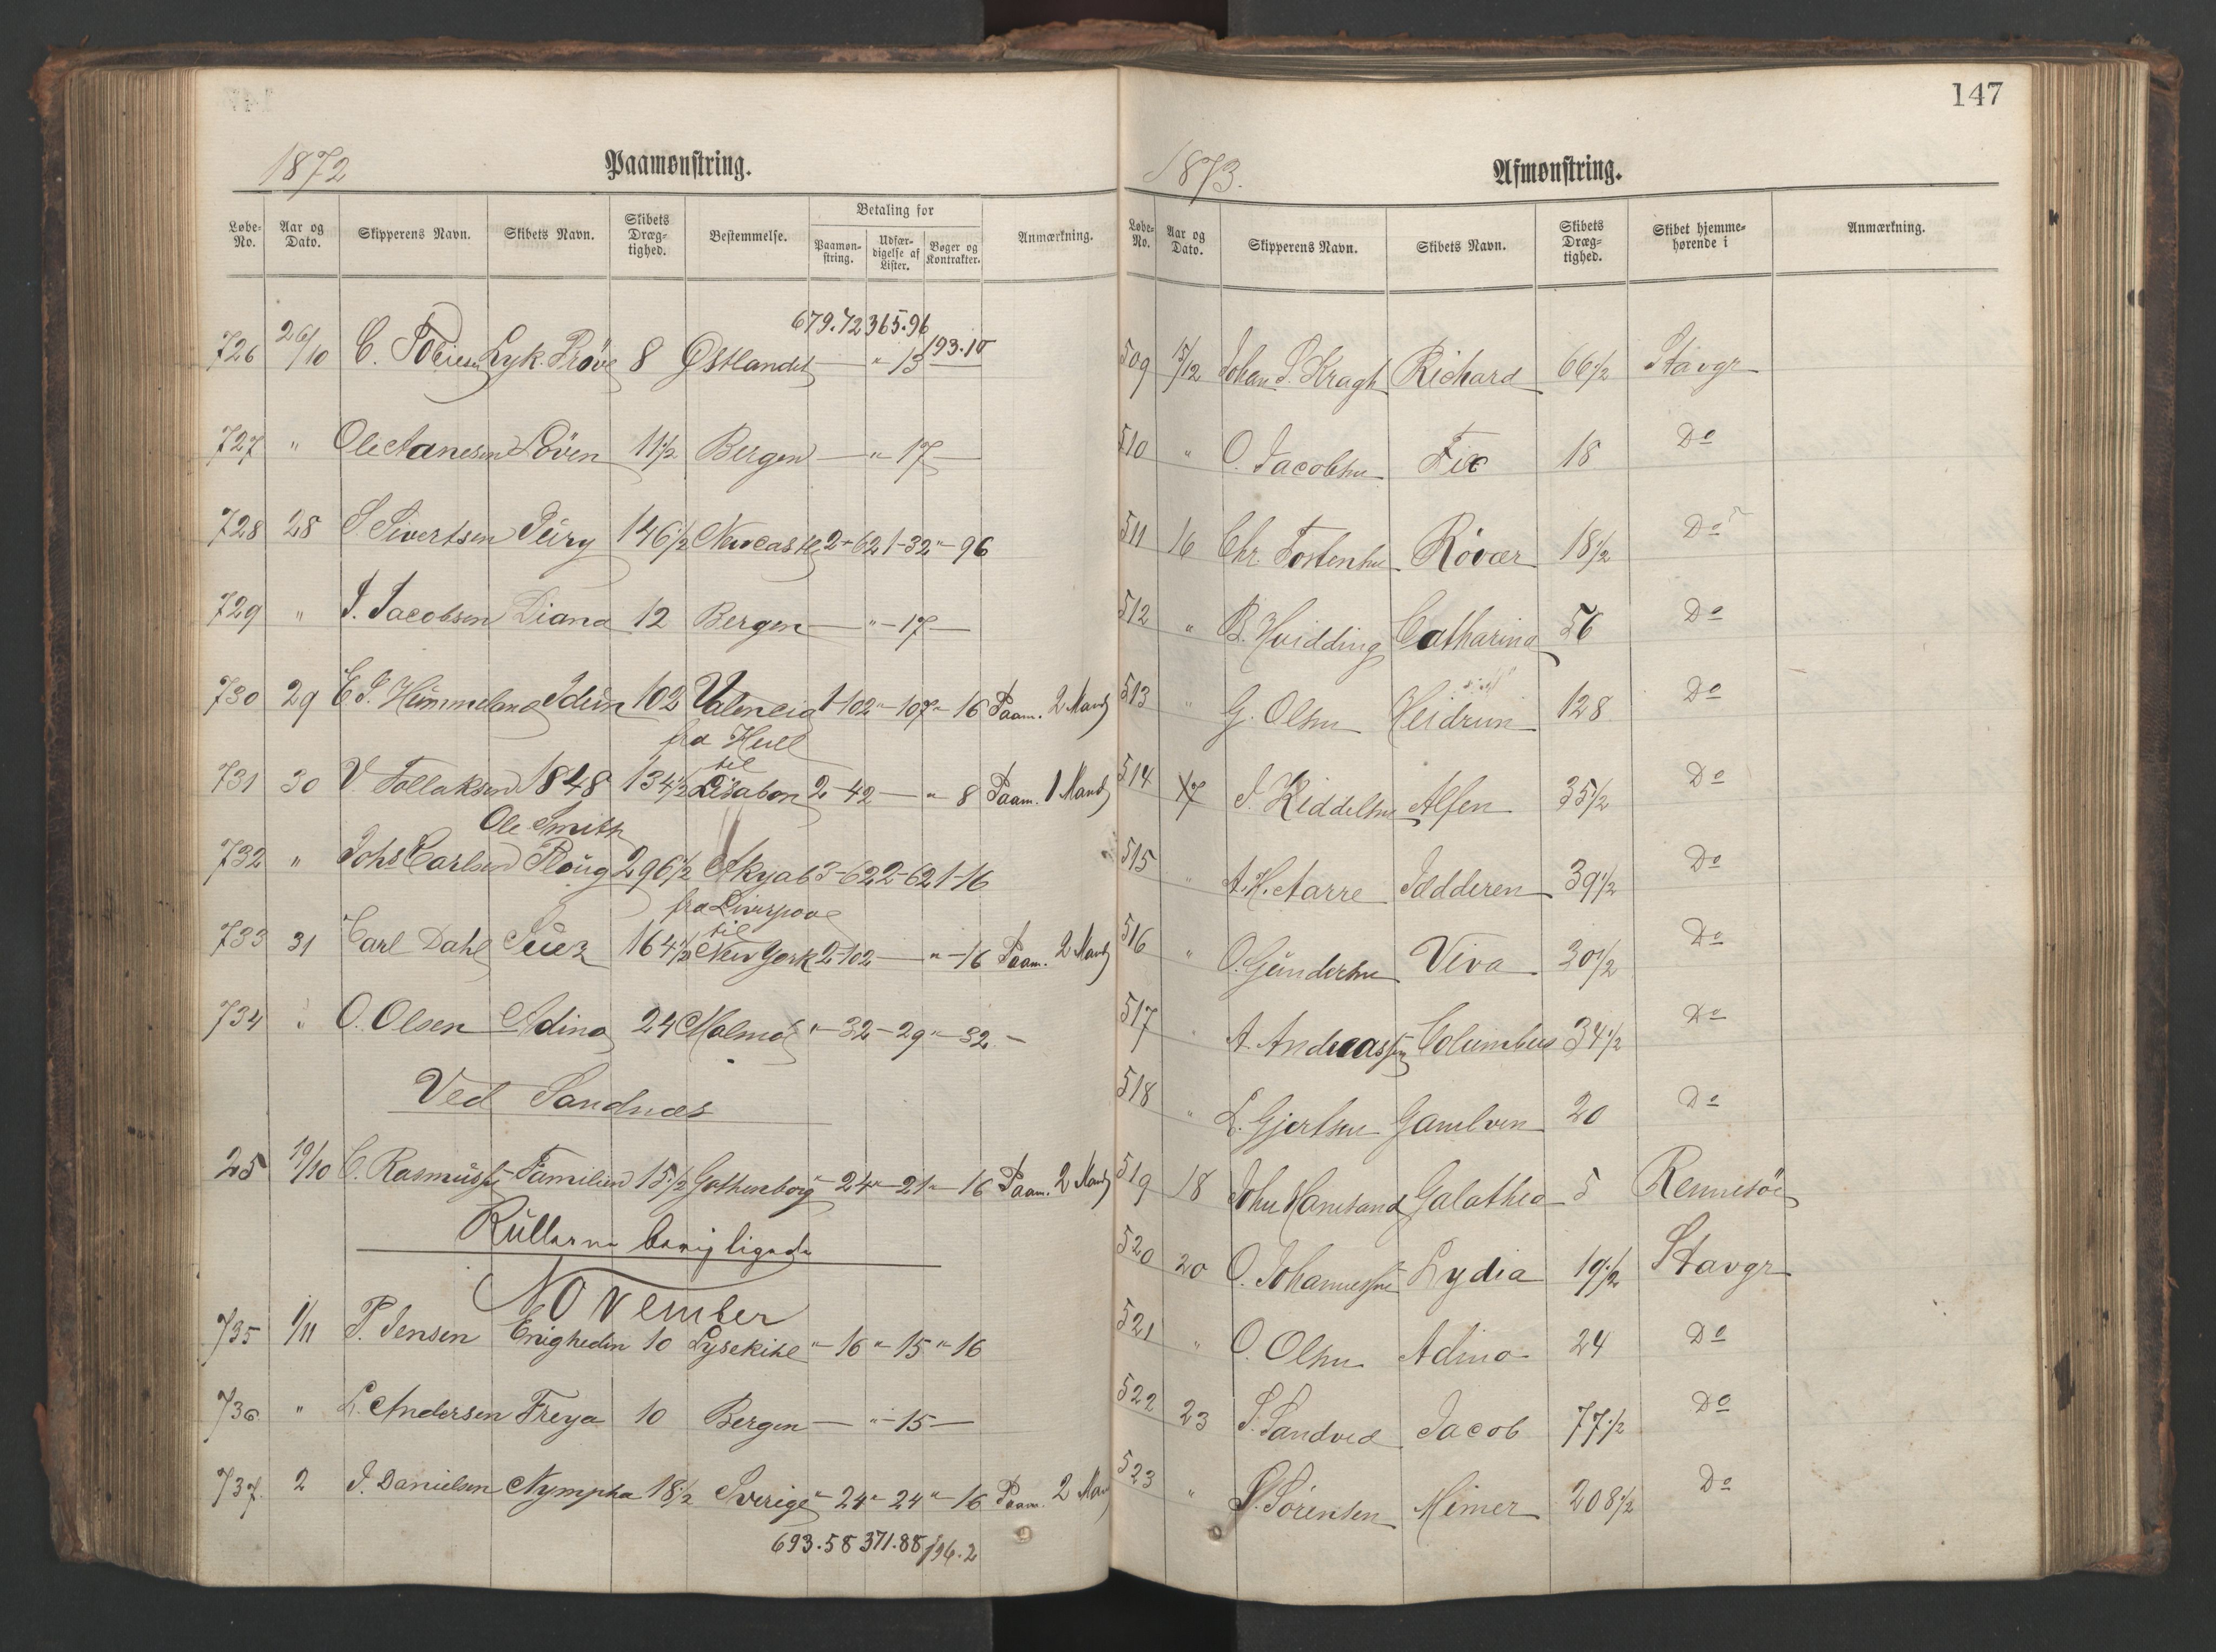 1872
Paamønstring.
Løbe-No. Aar og Dato. Skipperens Navn. Skibets Navn. Skibets Dræg-tighed. Bestemmelse. Betaling for Paamøn-string. Udfær-digelse af Lister. Bøger og Kontrakter. Anmærkning.
679.72 365.96 193.10
726 26/10 C. Tobiesen Lyk. Prøve 8 Østlandet — " 13 —
727 " Ole Aanesen Löven 11 1/2 Bergen — " 17 —
728 28 S. Sivertsen Jüry 146 1/2 Newcastle 2-62 1-32 "-96
729 " J. Jacobsen Diana 12 Bergen — "-17 —
730 29 E. S. Hümmeland Idün 102 Valencia 1-102 "-107 "-16 Paam. 2 Mand
fra Hull
til
731 30 V. Follaksen 1848 134 1/2 Lisabon 2-42 — " 8 Paam. 1 Mand
Ole Smith
732 " Johs Carlsen Ploüg 296 1/2 Akyab 3-62 2-62 1-16
fra Liverpool
til
733 31 Carl Dahl Süez 164 1/2 New York 2-102 — "-16 Paam. 2 Mand
734 " O. Olsen Adina 24 Malmö "-32-29 "-32 -
Ved Sandnæs
25 19/10 C. Rasmüssen Familien 15 1/2 Gothenborg "-24 "-21 "-16 Paam. 2 Mand
Rüllerne
November
735 1/11 P. Jensen Enigheden 10 Lysekihl "-16 "-15 "-16
736 " L. Andersen Freya 10 Bergen — "-15 —
737 2 J. Danielsen Nympha 18 1/2 Sverige "-24 "-24 "-16 Paam. 2 Man
693.58 371.88 196.2
147
1873.
Afmønstring.
Løbe-No. Aar og Dato. Skipperens Navn. Skibets Navn. Skibets Dræg-tighed. Skibet hjemme-hørende i Anmærkning.
509 15/12 Johan S. Kragh Richard 66 1/2 Stavgr
510 " O. Jacobsen Fix 18 Do
511 16 Chr. Tostensen Røvær 18 1/2 Do
512 " B. Hvidding Catharina 56 Do
513 " G. Olsen Heidrun 128 Do
514 17 J. Kiddelsen Alfen 35 1/2 Do
515 " A. H. Aarre Jædderen 39 1/2 Do
516 " O. Gündersen Viva 30 1/2 Do
517 " A. Andreassen Columbus 34 1/2 Do
518 " L. Gjertsen Gamlven 20 Do
519 18 John Hanesand Galathea 5 Rennesöe
520 20 O. Johannessen Lydia 19 1/2 Stavgr
521 " O. Olsen Adina 24 Do
522 23 S. Sandved Jacob 77 1/2 Do
523 " S. Sörensen Mimer 208 1/2 Do